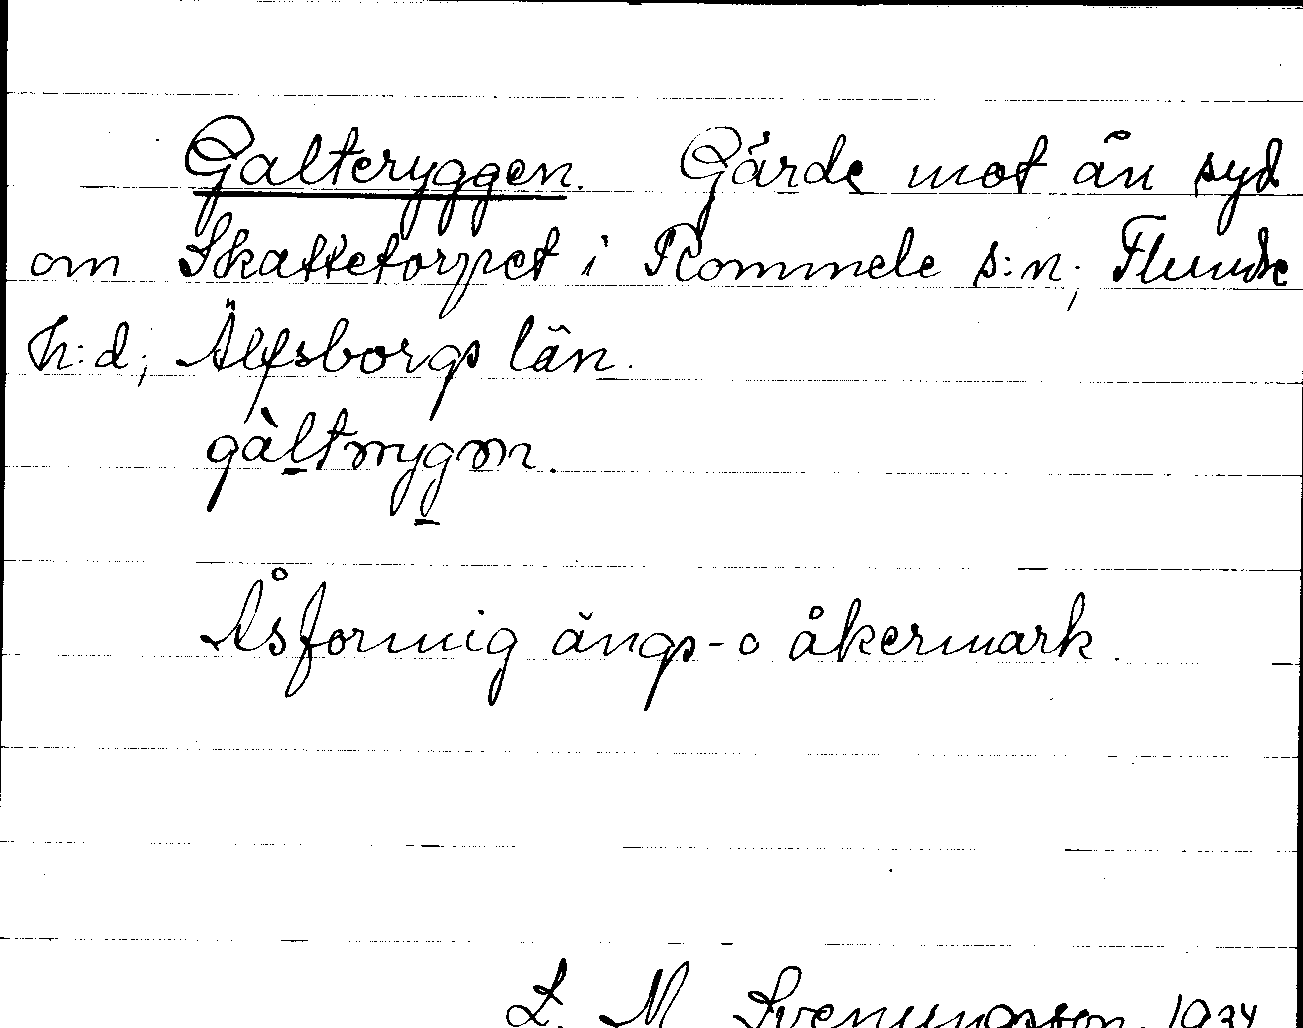 Galteryggen. Gärde mot ån syd
om Skattetorpet i Rommele s:n; Flundre
h:d; Älfsborgs län.
gàltrygən.
Åsformig ängs- o åkermark.
L. M Svenungsson 1934